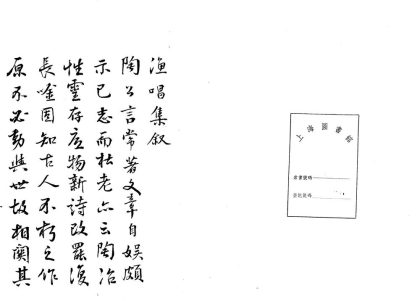 上海圖書館
索書號碼
登記號碼
漁唱集叙
陶公言常著文章自娛頗
示己志而杜老亦云陶冶
性靈存底物新詩改罷復
長唫固知古人不朽之作
原不必動與世故相關其